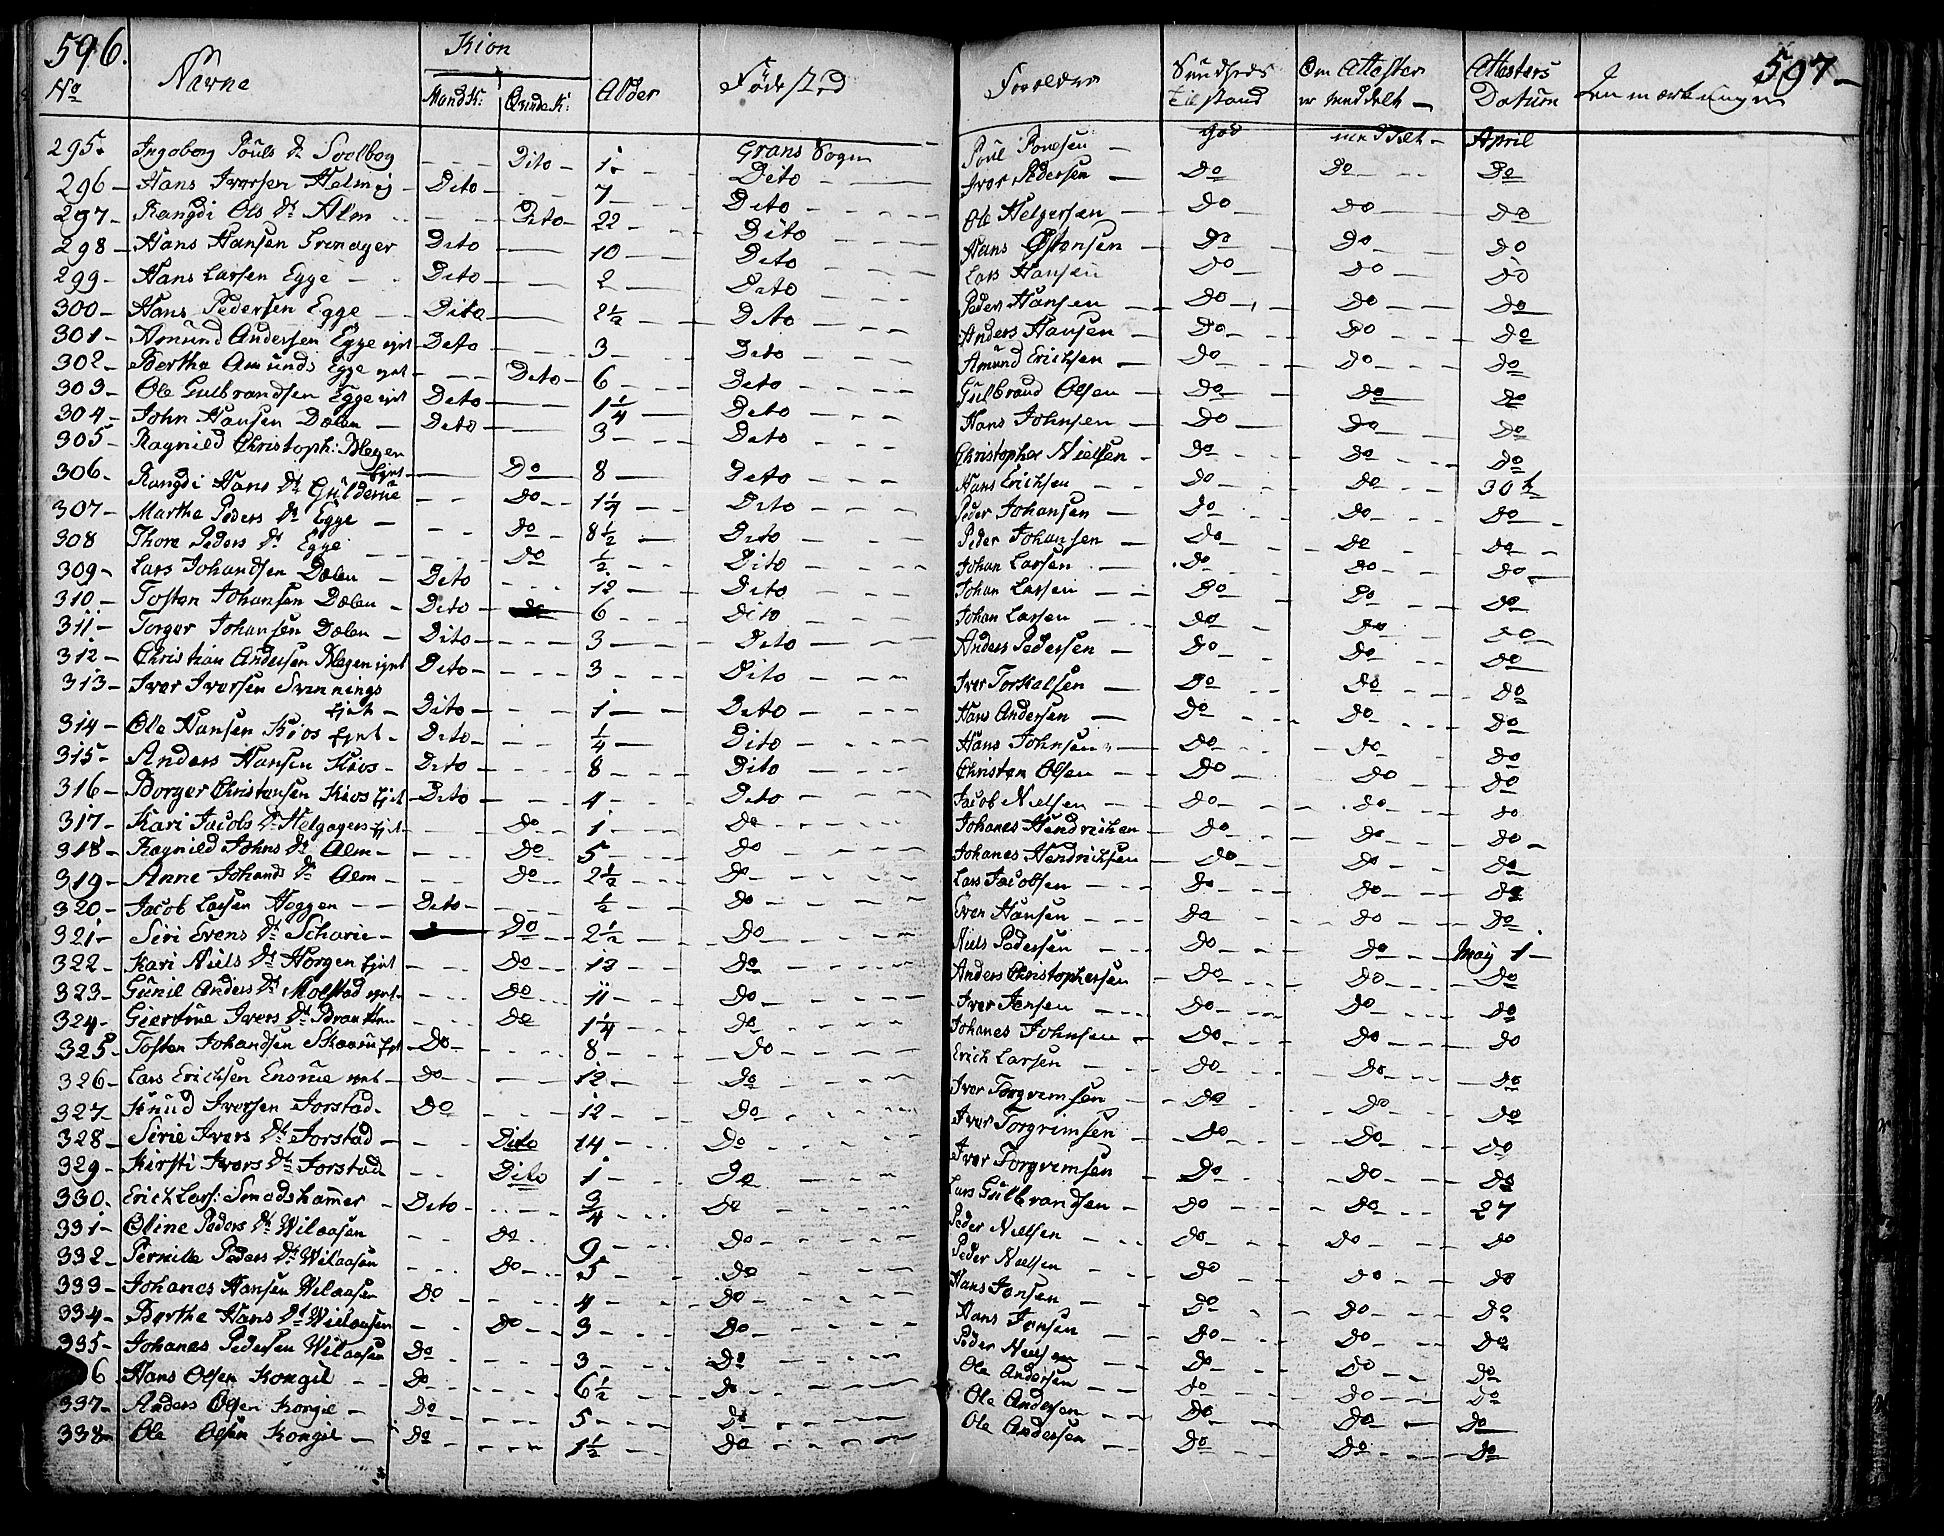 596.
597-
No Navne Kion Mandk: Qvindek: Alder Födested Forældre Sundheds Tilstand Om Attester er meddelt Attesters Datum Anmærkninger
295. Ingeborg Pouls Dr Soelbog - - - Dito 1 Grans Sogn Poul Poulsen god meddelt April
296 Hans Iversen Helmej Dito 7 Dito Iver Pedersen Do Do Do
297 Rangdi Ols Dr Alm Dito 22 Dito Ole Helgersen Do Do Do
298 Hans Hansen Grinager Dito 10 Dito Hans Østensen Do Do Do
299 Hans Larsen Egge Dito 2 Dito Lars Hansen Do Do Do
300 Hans Pedersen Egge Dito 2½ Dito Peder Hansen Do Do Do
301 Amund Andersen Egge ejet Dito 3 Dito Anders Hansen Do Do Do
302 Berthe Amunds Egge ejet Dito 6 Dito Amund Erichsen Do Do Do
303 Ole Gulbrandsen Egge ejet Dito 1¼ Dito Gulbrand Olsen Do Do Do
304 John Hansen Dælen Dito 3 Dito Hans Johnsen Do Do Do
305 Ragnild Christoph: Blegen Ejet Do 8 Dito Christopher Nielsen Do Do Do
306 Rangdi Hans Dr Gulderue Do 1¼ Dito Hans Erichsen Do Do 30t
307 Marthe Peders Dr Egge Do 8½ Dito Peder Johansen Do Do Do
308 Thore Peders Dr Egge Do ½ Dito Peder Johansen Do Do Do
309 Lars Johandsen Dælen Dito 12 Dito Johan Larsen Do Do Do
310 Tosten Johansen Dælen Dito 6 Dito Johan Larsen Do Do Do
311 Torger Johansen Dælen Dito 3 Dito Johan Larsen Do Do Do
312 Christian Andersen Blegen ejet Dito 3 Dito Anders Pedersen Do Do Do
313 Iver Iversen Svennings Ejet Dito 1 Dito Iver Torkalsen Do Do Do
314 Ole Hansen Kios Ejet Dito ¼ Dito Hans Andersen Do Do Do
315 Anders Hansen Kios Dito 8 Dito Hans Johnsen Do Do Do
316 Borger Christensen Kios Ejet Dito 4 Dito Christen Olsen Do Do Do
317 Kari Jacobs Dr Helgagers Ejet Do 1 Do Jacob Nielsen Do Do Do
318 Ragnild Johns Dr Alm Do 5 Do Johanes Hendrichsen Do Do Do
319 Anne Johands Dr Alm Do 2½ Do Johanes Hendrichsen Do Do Do
320 Jacob Larsen Heggen Dito ½ Do Lars Jacobsen Do Do Do
321 Siri Evens Dr Scharie Do 2½ Do Even Hansen Do Do Do
322 Kari Niels Dr Horgen Ejet Do 12 Do Niels Pedersen Do Do May 1
323 Gunil Anders Dr Molstad ejet Do 11 Do Anders Christophersen Do Do Do
324 Giertrue Ivers Dr Do 1¼ Do Iver Jensen Do Do Do
325 Tosten Johandsen Skaarin Ejet Do 8 Do Johanes Johnsen Do Do Do
326 Lars Erichsen Ensrue ejet Do 12 Do Erich Larsen Do Do Do
327 Knud Iversen Jorstad Do 12 Do Iver Torgrimsen Do Do Do
328 Sirie Ivers Dr Jorstad Dito 14 Do Iver Torgrimsen Do Do Do
329 Kirsti Ivers Dr Jorstad Dito 1 Do Iver Torgrimsen Do Do Do
330. Erich Lars: Smedshamer Dito ¾ Do Lars Gulbrandsen Do Do 27
331 Oline Peders Dr Wilaasen Do 9 Do Peder Nielsen Do Do Do
332 Pernille Peders Dr Wilaasen Do 5 Do Peder Nielsen Do Do Do
333 Johanes Hansen Wilaasen Do 4 Do Hans Jansen Do Do Do
334 Berthe Hans Dr Wilaasen Do 3 Do Hans Jensen Do Do Do
335 Johanes Pedersen Wilaasen Do 3 Do Peder Nielsen Do Do Do
6 Hans Olsen Kongil Do 6½ Do Ole Andersen Do Do Do
337 Anders Olsen Kongil Do 5 Do Ole Andersen Do Do Do
338 Ole Olsen Kongil Do 1½ Do Ole Andersen Do Do Do